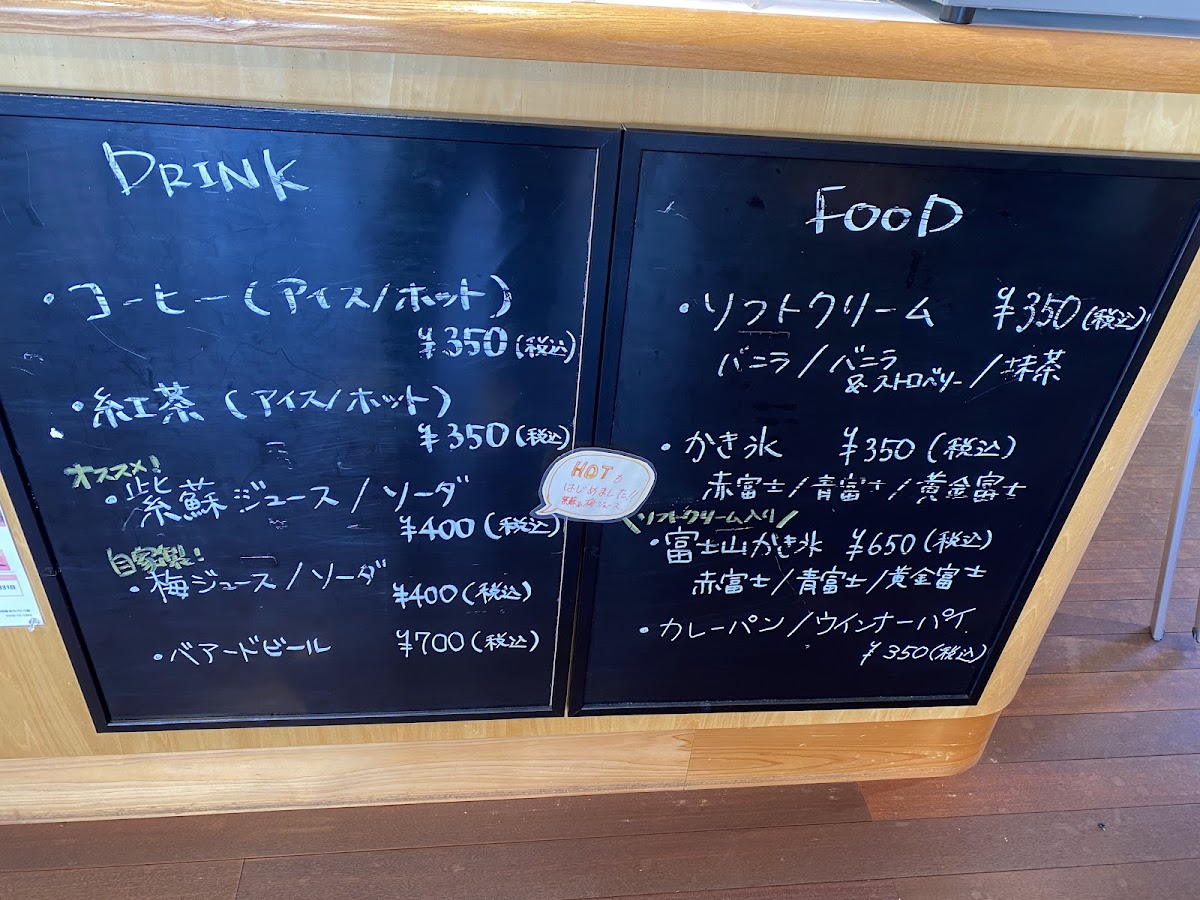 DRINK
・コーヒー(アイス/ホット)
¥350(税込)
・紅茶(アイス/ホット)
¥350(税込)
オススメ!
・紫蘇ジュース/ソーダ
¥400(税込)
自家製!
・梅ジュース/ソーダ
¥400(税込)
・ベアードビール ¥700(税込)
HOTも
はじめました!!
FOOD
・ソフトクリーム ¥350(税込)
バニラ/バニラ
&ストロベリー/抹茶
・かき氷 ¥350(税込)
赤富士/青富士/黄金富士
\ソフトクリーム入り/
・富士山かき氷 ¥650(税込)
赤富士/青富士/黄金富士
・カレーパン/ウインナーパイ
¥350(税込)